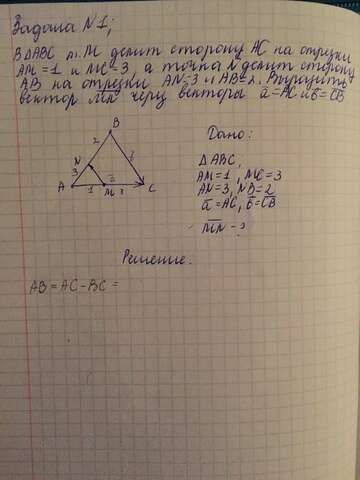 Задача №1;
В ΔABC т. М делит сторону AC на отрезки
AM=1 и MC=3 а точка N делит сторону
AB на отрезки AN=3 и AB=2. Выразить
вектор MN через векторы a̅=AC и b̅=CB
Дано:
B
2
N
3
A 1 M 3 C
ΔABC,
AM=1, MC=3
AN=3, NB=2
a̅=A̅C̅, b̅=C̅B̅
M̅N̅ - ?
Решение.
AB=AC-BC=